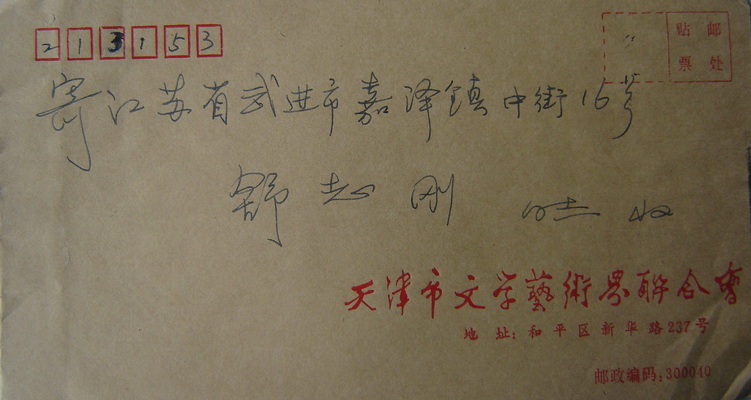 213153
贴邮
票处
寄江苏省武进市嘉泽镇中街16号
舒志刚 收
天津市文学藝術界聯合會
地址:和平区新华路237号
邮政编码:300040